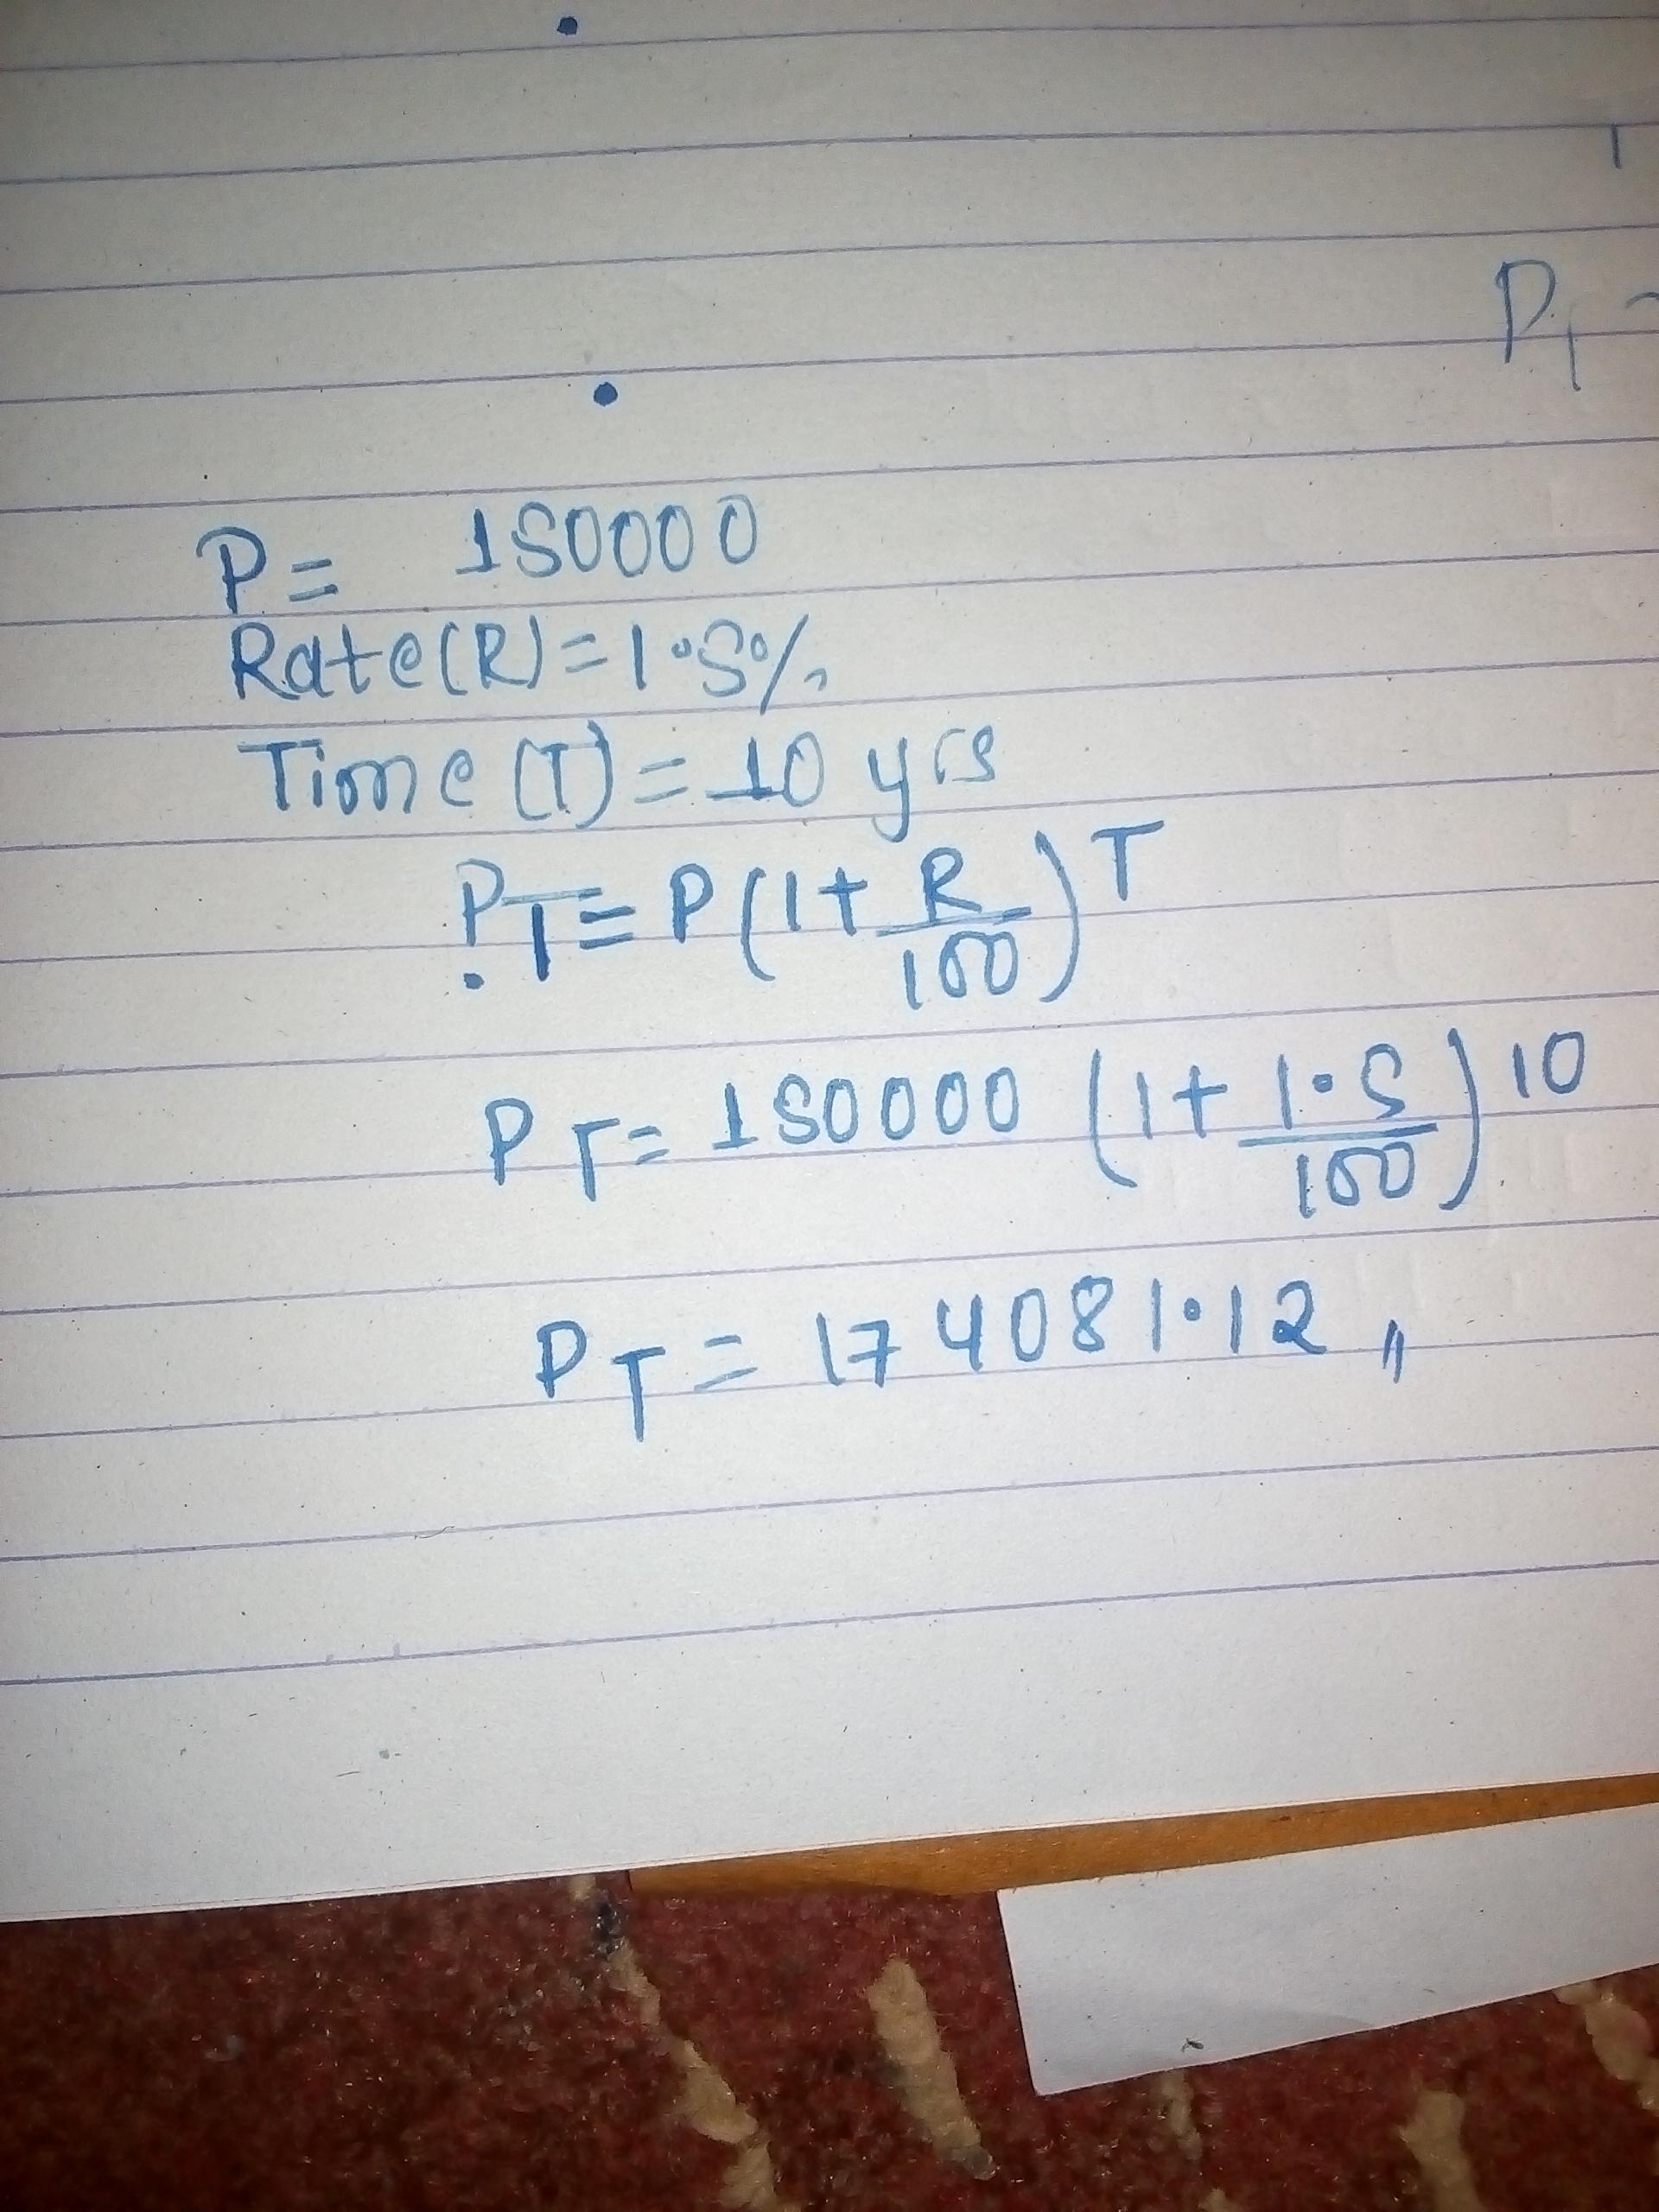 P₁
P = 150000
Rate(R) = 1.5%
Time (T) = 10 yrs
P_T = P(1 + R/100)^T
P_T = 150000 (1 + 1.5/100)^10
P_T = 174081.12 〃